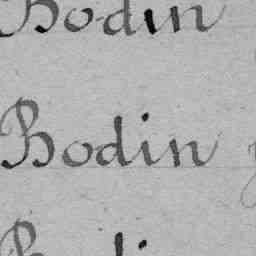 Bodin
Bodin